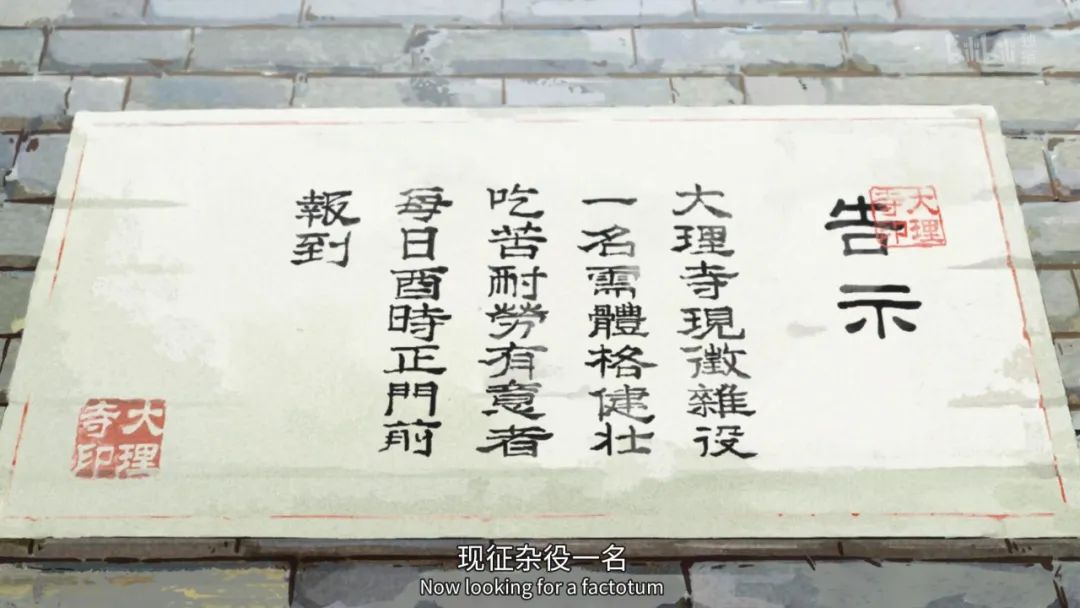 告示
大理寺印
大理寺現徵雜役
一名需體格健壯
吃苦耐勞有意者
每日酉時正門前
報到
大理寺印
现征杂役一名
Now looking for a factotum